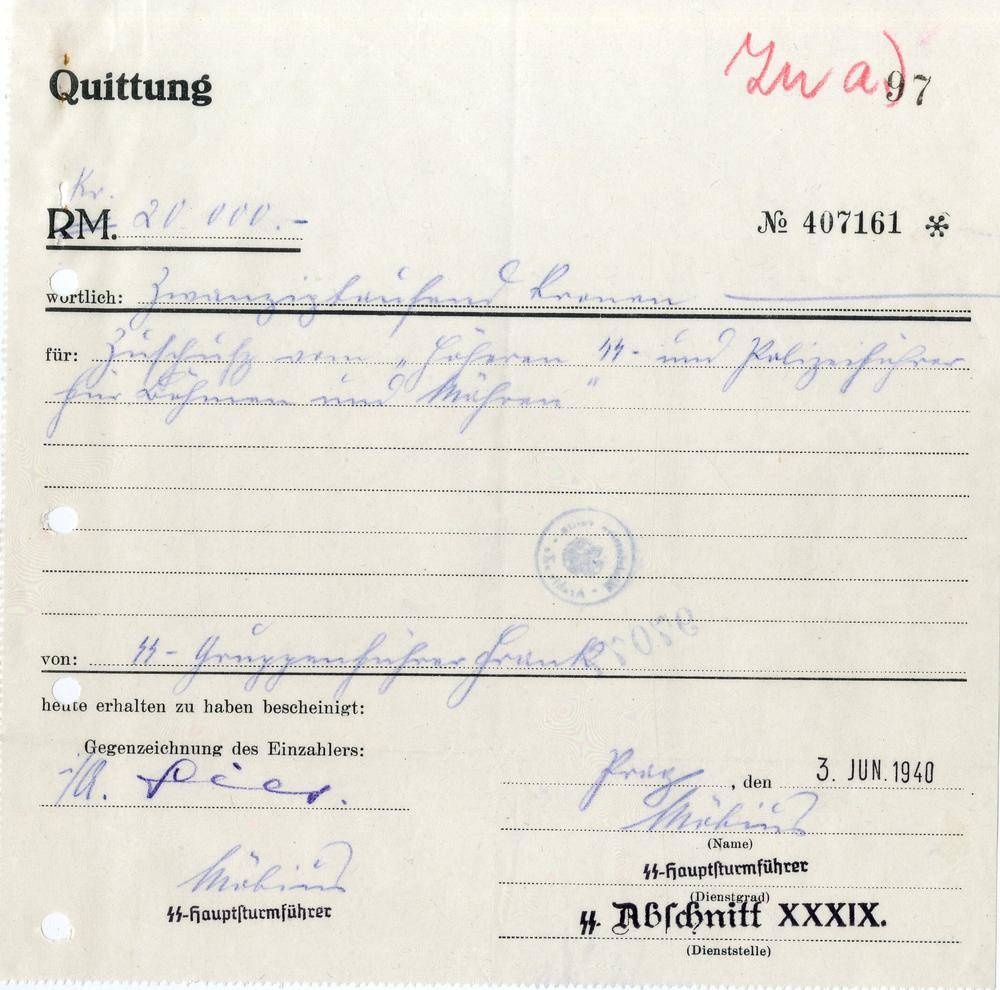 Zu a)
Quittung 97
Kr.
RM. 20 000.-
№ 407161 *
wörtlich: Zwanzigtausend Kronen
für: Zuschuß vom „Höheren SS- und Polizeiführer
für Böhmen und Mähren"
von: SS-Gruppenführer Frank
heute erhalten zu haben bescheinigt:
Gegenzeichnung des Einzahlers:
i/A.
Prag, den 3. JUN. 1940
Möbius
(Name)
SS-Hauptsturmführer
(Dienstgrad)
SS Abschnitt XXXIX.
(Dienststelle)
Möbius
SS-Hauptsturmführer